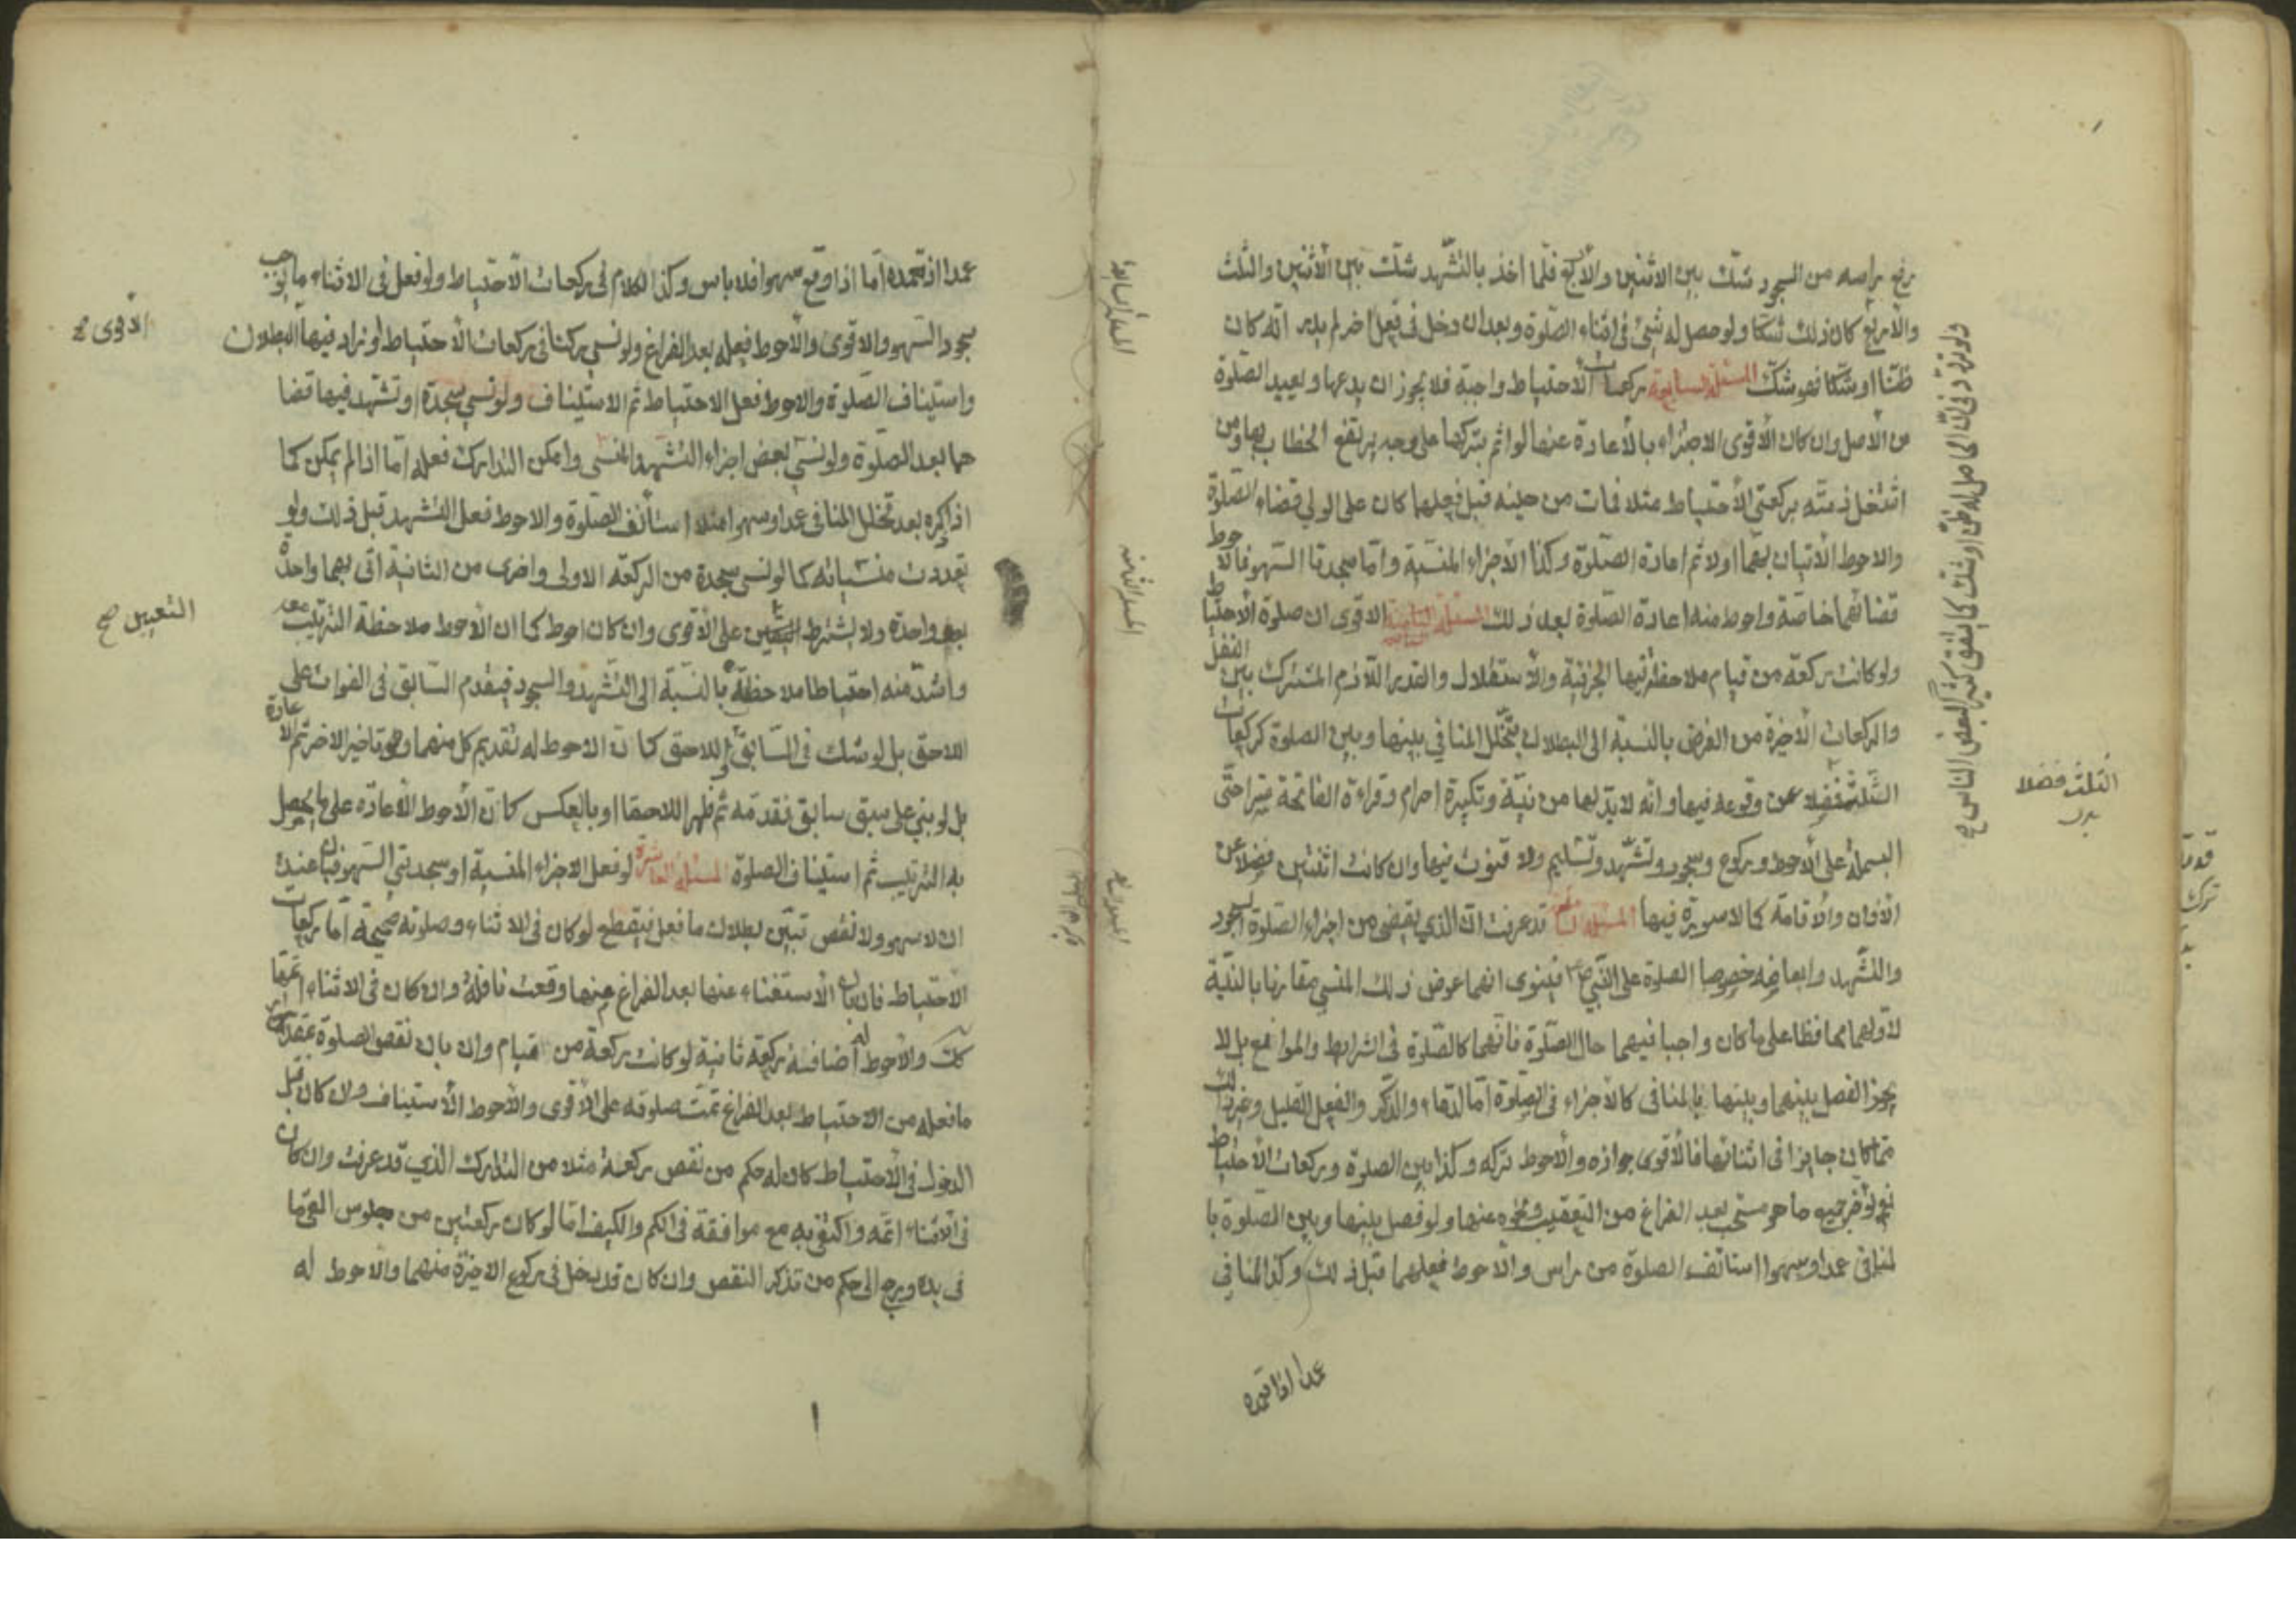 رفع راسه من السجود شك بين الاثنين والأربع فلما اخذ بالتشهد شك بين الأثنين والثلث
والأربع كان ذلك شكا ولو حصل له شئ فى اثناء الصلوة وبعد ان دخل فى فعل اخر لم يدر انه كان
ظنا او شكا فهو شك المسئلة السابعة ركعات الاحتياط واجبة فلا يجوز ان يدعها ويعيد الصلوة
من الأصل وان كان الأقوى الاجتزاء بالأعادة عنها لو اثم بتركها على وجه يرتفع الخطاب بها ومن
اشتغل ذمته بركعتى الأحتياط مثلا فمات من حينه قبل فعلهما كان على الولي قضاء الصلوة
والاحوط الأتيان بهما اولا ثم اعادة الصلوة وكذا الأجزاء المنسية واما سجدتا السهو فالاحوط
قضائهما خاصة واحوط منه اعادة الصلوة بعد ذلك المسئلة الثامنة الاقوى ان صلوة الاحتياط
ولو كانت ركعة من قيام ملاحظ فيها الجزئية والأستقلال والقدر اللازم المشترك بين النفل
والركعات الأخيرة من الفرض بالنسبة الى البطلان بتخلل المنافي بينها وبين الصلوة كركعات
الثلث فضلا عن وقوعه فيها وانه لابد لها من نية وتكبيرة احرام وقراءة الفاتحة سرا حتى
البسملة على الأحوط وركوع وسجود وتشهد وتسليم ولا قنوت فيها وان كانت اثنتين فضلا عن
الأذان والأقامة كما لا سورة فيها المسئلة التاسعة قد عرفت ان الذي يقضى من اجزاء الصلوة السجود
والتشهد وابعاضه خصوصا الصلوة على النبي ص فينوى انهما عوض ذلك المنسي مقارنا بالنية
لأولهما محافظا على ما كان واجبا فيهما حال الصلوة فانهما كالصلوة فى الشرايط والموانع بل لا
يجوز الفصل بينهما وبينها بالمنافى كالأجزاء فى الصلوة اما الدعاء والذكر والفعل القليل وغير ذلك
مما كان جايزا فى اثنائها فالأقوى جوازه والأحوط تركه وكذا بين الصلوة وركعات الأحتياط
ما هو مستحب بعد الفراغ من التعقيب ونحوه عنها ولو فصل بينها وبين الصلوة با
لمنافى عمدا وسهوا استانف الصلوة من راس والأحوط فعلهما قبل ذلك وكذا المنافي
عمدا اذا تعمده
ولو تردد فى ان الحاصل له ظن او شك كما يتفق كثيرا لبعض الناس
الثلث فضلا
بدل
المسئلة السابعة
المسئلة الثامنة
عمدا اذا تعمده اما اذا وقع سهوا فلا باس وكذا الكلام فى ركعات الأحتياط ولو فعل فى الاثناء ما يوجب
سجود السهو والاقوى والأحوط فعله بعد الفراغ ولو نسي ركنا فى ركعات الأحتياط او زاد فيها البطلان
واستيناف الصلوة والاحوط فعل الاحتياط ثم الاستيناف ولو نسي سجدة او تشهد فيها قضا
هما بعد الصلوة ولو نسي بعض اجزاء التشهد المنسى وامكن التدارك فعله اما اذا لم يمكن كما
اذا ذكره بعد تخلل المنافى عمدا وسهوا مثلا استأنف الصلوة والاحوط فعل التشهد قبل ذلك ولو
تعددت منسياته كما لو نسي سجدة من الركعة الاولى واخرى من الثانية اتى بهما واحدة
بعد واحدة ولا يشترط التعيين على الأقوى وان كان احوط كما ان الأحوط ملاحظة الترتيب معه
واشد منه احتياطا ملاحظة بالنسبة الى التشهد والسجود فيقدم السابق فى الفوات على
اللاحق بل لو شك فى السابق واللاحق كان الاحوط له تقديم كل منهما وتاخير الاخر ثم الاعادة
بل لو بني على سبق سابق فقدمه ثم ظهر اللاحقا او بالعكس كان الأحوط الأعادة على ما يحصل
به الترتيب ثم استيناف الصلوة المسئلة العاشرة لو فعل الاجزاء المنسية او سجدتي السهو فبان عنده
ان لا سهو ولا نقص تبين بطلان ما فعل فيقطع لو كان فى الاثناء وصلوته صحيحة اما ركعات
الأحتياط فان بان الأستغناء عنها بعد الفراغ منها وقعت نافلة وان كان فى الاثناء اتمها
كك والأحوط له اضافة ركعة ثانية لو كانت ركعة من قيام وان بان نقص الصلوة بمقدار
ما فعله من الاحتياط بعد الفراغ تمت صلوته على الأقوى والأحوط الأستيناف وان كان قبل
الدخول فى الأحتياط كان له حكم من نقص ركعة مثلا من التدارك الذي قد عرفت وان كان
فى الأثناء اتمه واكتفى به مع موافقة فى الكم والكيف اما لو كان ركعتين من جلوس القى ما
فى يده ورجع الى حكم من تذكر النقص وان كان قد دخل فى ركوع الاخيرة منهما والأحوط له
الأقوى صح
التعيين صح